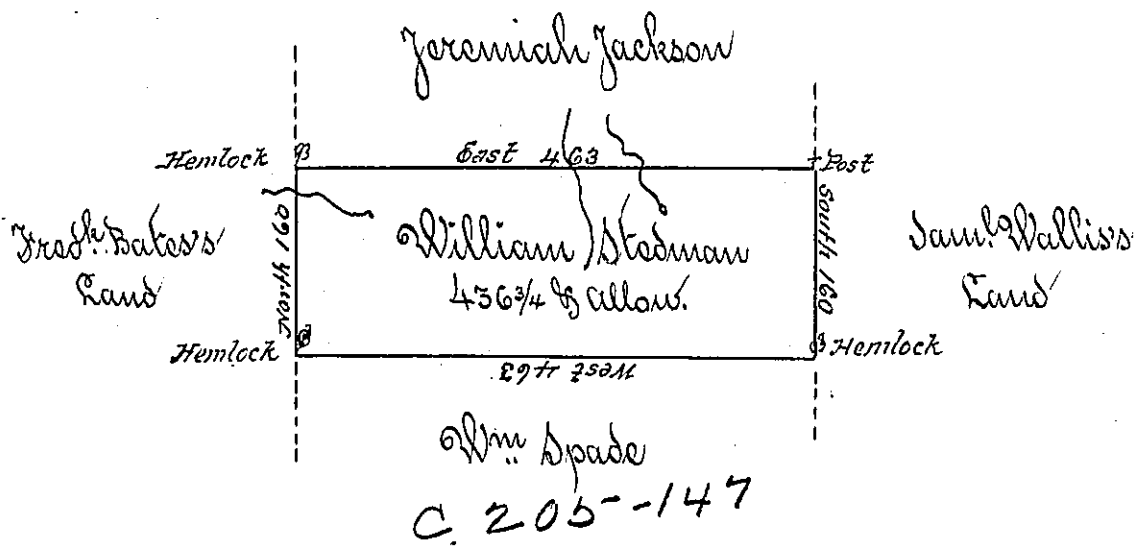 Jeremiah Jackson
Hemlock
East 463
Post
Fredk. Bates's
Land
North 160
William Stedman
436 3/4 & allow.
South 160
Saml. Wallis's
Land
Hemlock
West 463
Hemlock
Wm. Spade
C. 205--147